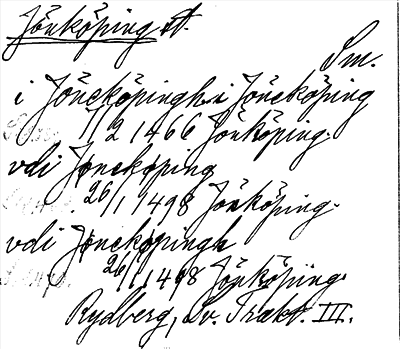 Jönköping st.
Sm.
i Jöneköpingh i Jöneköping
7/2 1466 Jönköping.
vdi Jonekoping
26/1 1498 Jönköping.
vdi Jonekopingh
26/1 1498 Jönköping.
Rydberg, Sv. Trakt. III.